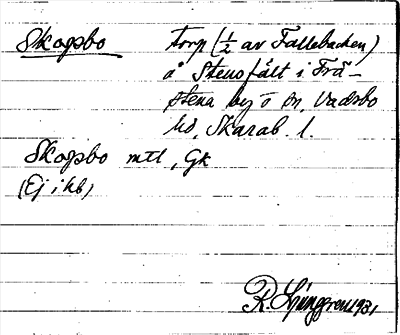 Skogsbo torp (1/2 av Fallebacken)
å Stensfält i Frä-
stena by o sn, Vadsbo
hd, Skarab. l.
Skogsbo mtl, Gk
(Ej i hb)
R. Ljunggren 1931